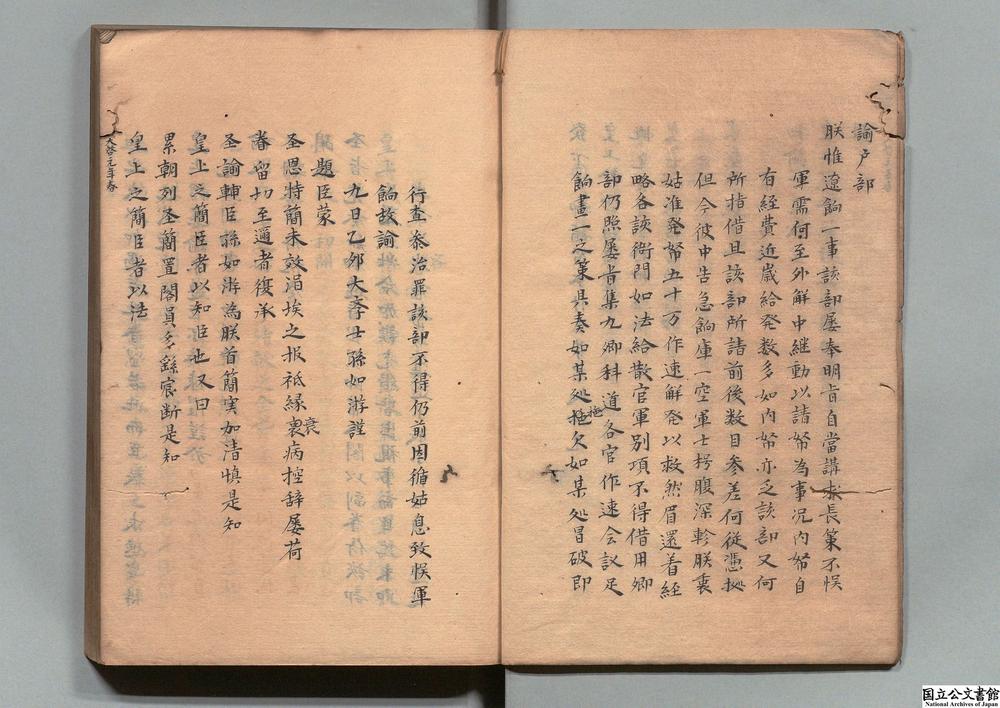 諭戸部
朕惟遼餉一事該部屡奉明旨自當講求長策不悮
軍需何至外解中継動以請帑為事况内帑自
有経費近歳給発数多如内帑亦乏該部又何
所指借且該部所請前後数目参差何従憑拠
但今彼中告急餉庫一空軍士枵腹深軫朕衷
姑准発帑五十万作速解発以救然眉還着経
略各該衙門如法給散官軍別項不得借用卿
部仍照屡旨集九卿科道各官作速会議足
餉畫一之策具奏如某処拖欠如某処冒破即
拖
行查参治罪該部不得仍前因循姑息致悮軍
餉故諭
九日乙夘大斈士孫如游謹
題臣蒙
圣恩特簡未效涓埃之报祗縁衷病控辞屡荷
衰
眷留切至邇者復承
圣諭輔臣孫如游為朕首簡寔加清慎是知
皇上之簡臣者以知臣也又曰
累朝列圣簡置閣員多繇宸断是知
皇上之簡臣者以法
天啓元年春
国立公文書館
National Archives of Japan